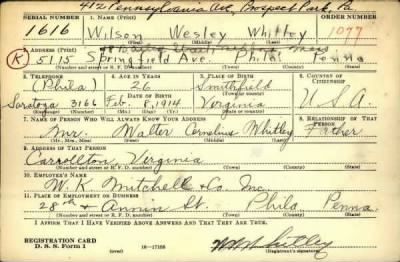 412 Pennsylvania Ave Prospect Park, Pa.
SERIAL NUMBER 1. NAME (Print) ORDER NUMBER
1616 Wilson Wesley Whitley 1077
(First) (Middle) (Last)
2. ADDRESS (Print)
K 5115 Springfield Ave. Phila Penna
(Number and street or R. F. D. number) (Town) (County) (State)
3. TELEPHONE 4. AGE IN YEARS 5. PLACE OF BIRTH 6. COUNTRY OF CITIZENSHIP
(Phila) 26 Smithfield
DATE OF BIRTH (Town or county)
Saratoga 3166 Feb. 8, 1914 Virginia U.S.A.
(Exchange) (Number) (Mo.) (Day) (Yr.) (State or country)
7. NAME OF PERSON WHO WILL ALWAYS KNOW YOUR ADDRESS 8. RELATIONSHIP OF THAT PERSON
Mr. Walter Cornelius Whitley Father
(Mr., Mrs., Miss) (First) (Middle) (Last)
9. ADDRESS OF THAT PERSON
Carrollton, Virginia
(Number and street or R. F. D. number) (Town) (County) (State)
10. EMPLOYER'S NAME
W. K. Mitchell & Co. Inc.
11. PLACE OF EMPLOYMENT OR BUSINESS
28th & Annin St. Phila Penna.
(Number and street or R. F. D. number) (Town) (County) (State)
I AFFIRM THAT I HAVE VERIFIED ABOVE ANSWERS AND THAT THEY ARE TRUE.
REGISTRATION CARD
D. S. S. Form 1 (over) 16—17105 W W Whitley
(Registrant's signature)